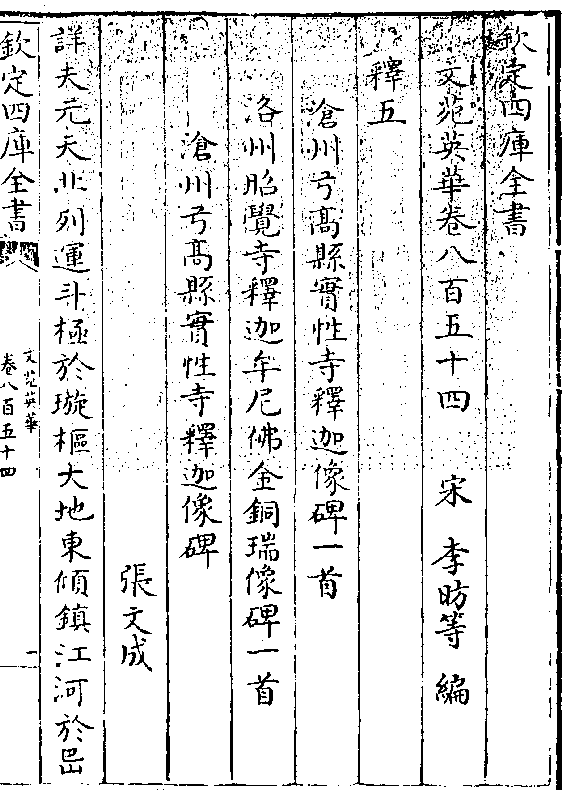 欽定四庫全書
文苑英華卷八百五十四　宋　李昉等　編
釋五
滄州弓髙縣實性寺釋迦像碑一首
洛州昭覺寺釋迦牟尼佛金銅瑞像碑一首
滄州弓髙縣實性寺釋迦像碑
張文成
詳夫元天北列運斗極於璇樞大地東傾鎮江河於嵒
欽定四庫全書
文苑英華
卷八百五十四
一